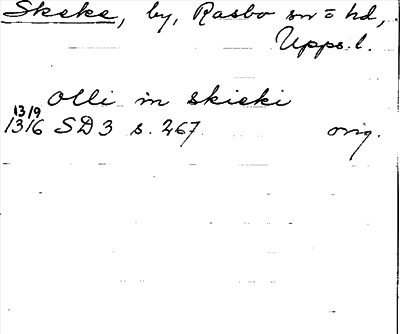 Skeke, by, Rasbo sn o hd,
Upps. l.
Olli in skieki
13/9
1316 SD 3 s. 267. orig.